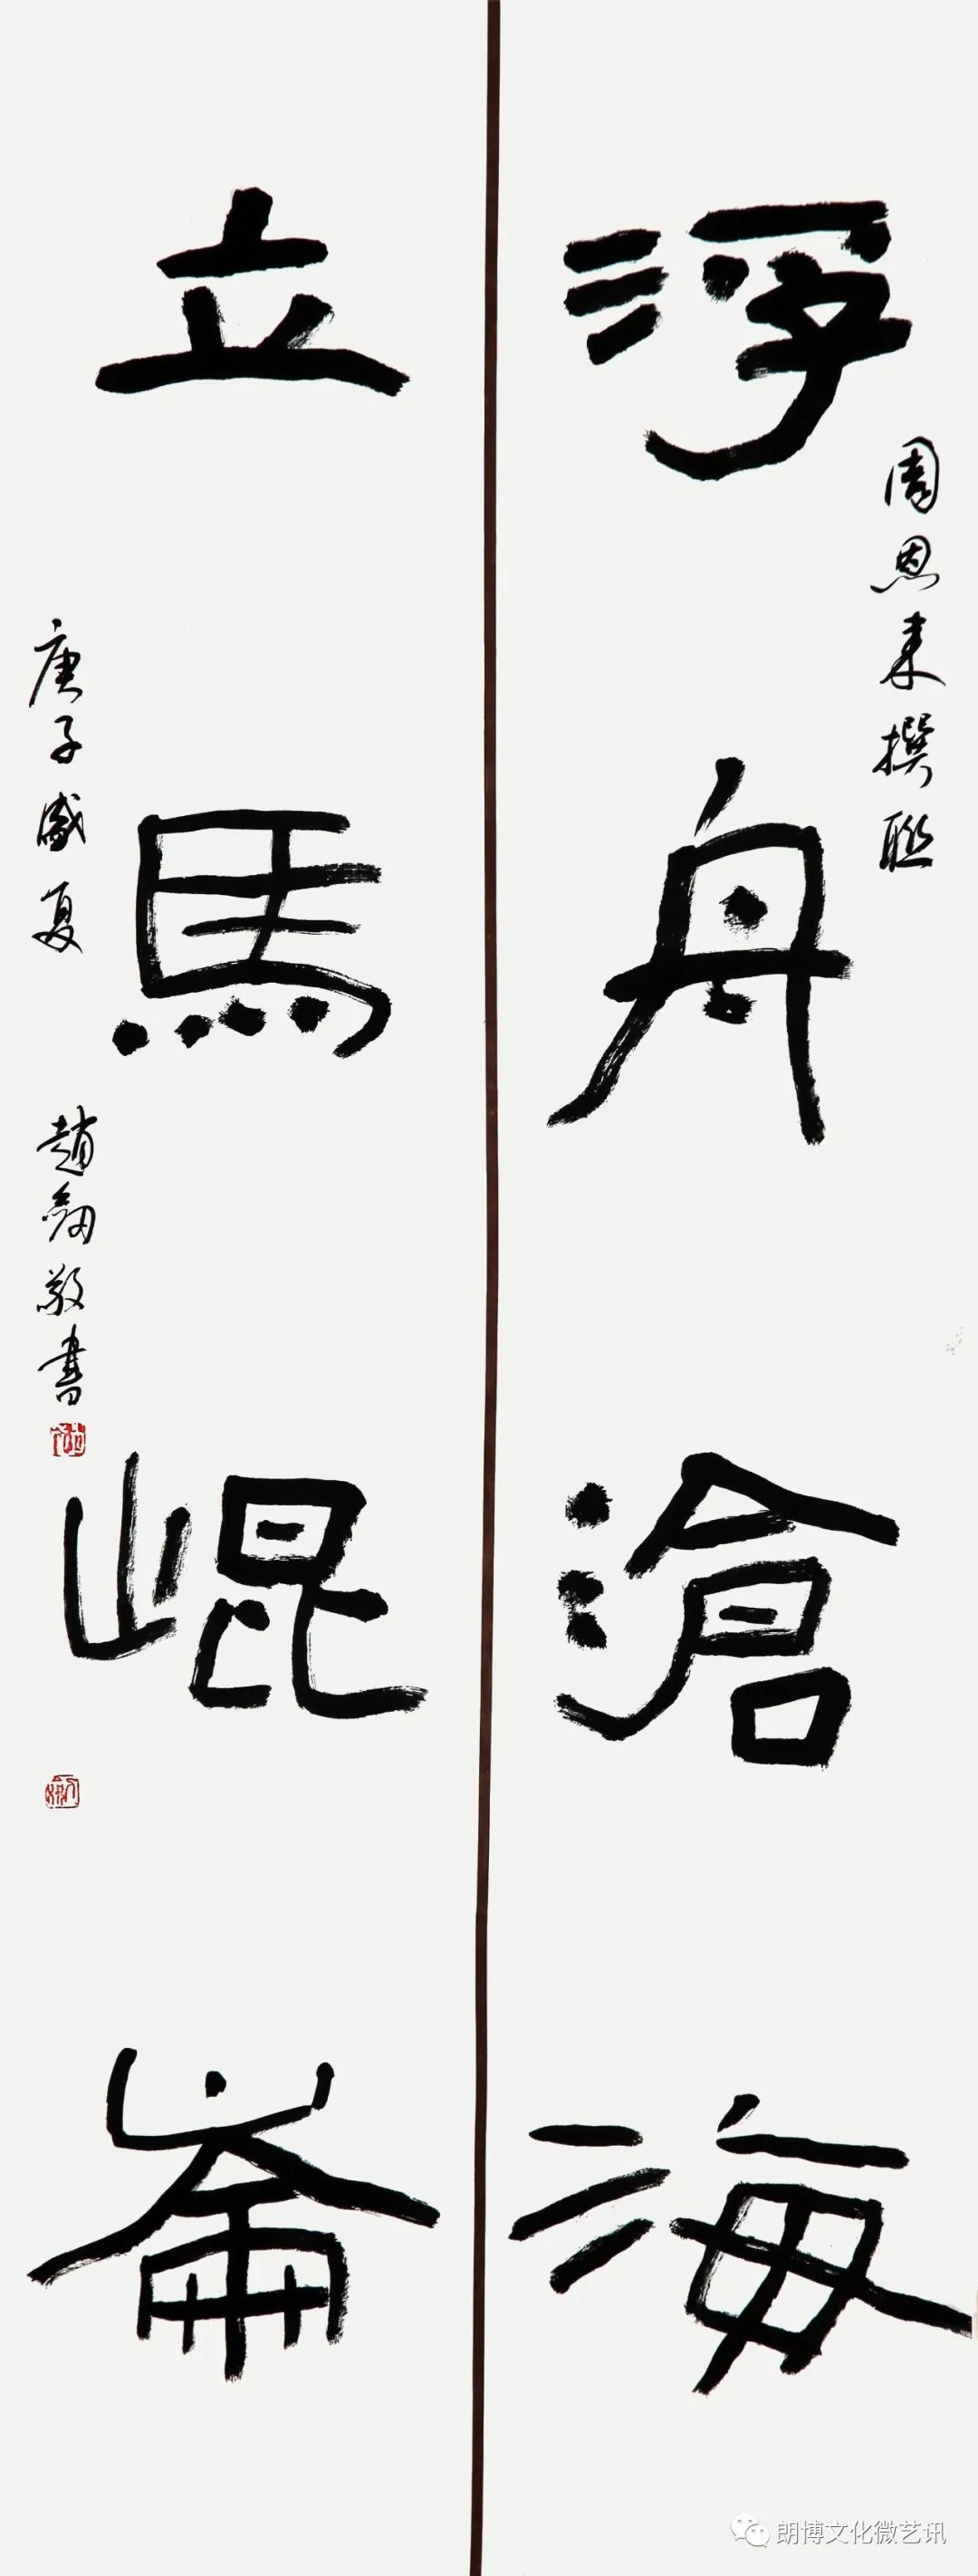 浮舟滄海
周恩来撰联
立馬崐崙
庚子盛夏
趙劒敬書
朗博文化微艺讯